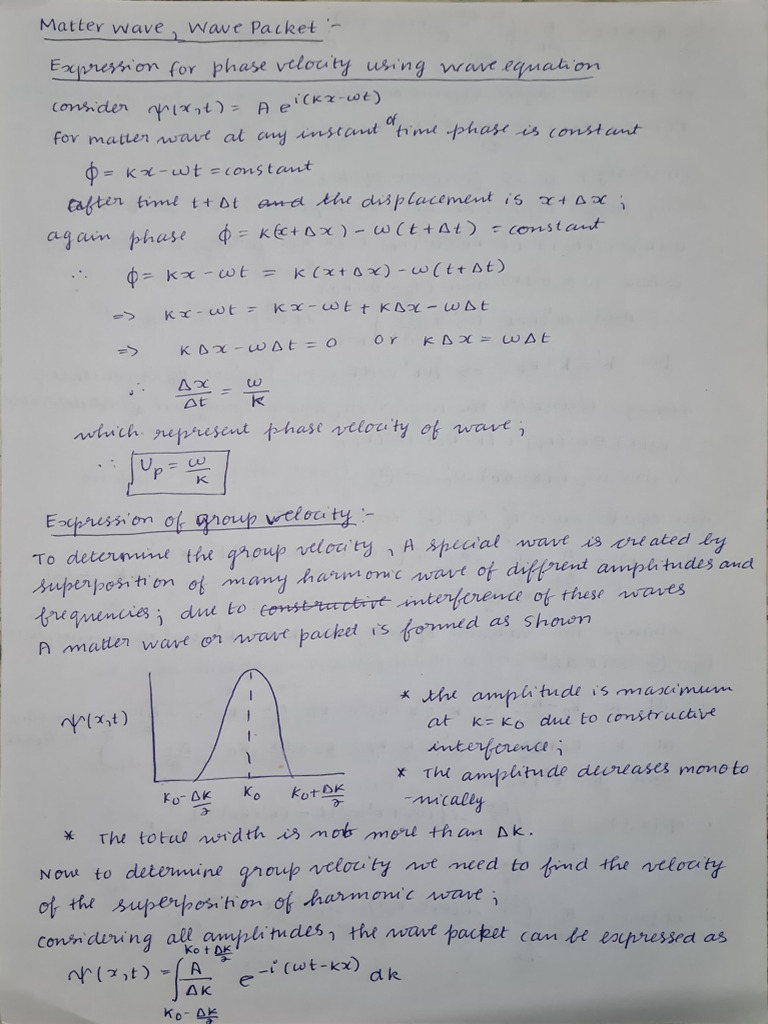 Matter wave, Wave Packet :-
Expression for phase velocity using wave equation
consider ψ(x,t) = A e^{i(kx-ωt)}
for matter wave at any instant of time phase is constant
ϕ = kx - ωt = constant
after time t+Δt and the displacement is x+Δx ;
again phase ϕ = k(x+Δx) - ω(t+Δt) = constant
∴ ϕ = kx - ωt = k(x+Δx) - ω(t+Δt)
=> kx - ωt = kx - ωt + kΔx - ωΔt
=> kΔx - ωΔt = 0 or kΔx = ωΔt
∴ Δx/Δt = ω/k
which represent phase velocity of wave ;
∴ Up = ω/k
Expression of group velocity :-
To determine the group velocity, A special wave is created by
superposition of many harmonic wave of diffrent amplitudes and
frequencies ; due to constructive interference of these waves
A matter wave or wave packet is formed as shown
ψ(x,t)
k0 - Δk/2 k0 k0 + Δk/2
* the amplitude is maximum
at k = k0 due to constructive
interference ;
* The amplitude decreases monoto
-nically
* The total width is not more than Δk.
Now to determine group velocity we need to find the velocity
of the superposition of harmonic wave ;
considering all amplitudes, the wave packet can be expressed as
ψ(x,t) = ∫_{k0 - Δk/2}^{k0 + Δk/2} A/Δk e^{-i(ωt-kx)} dk